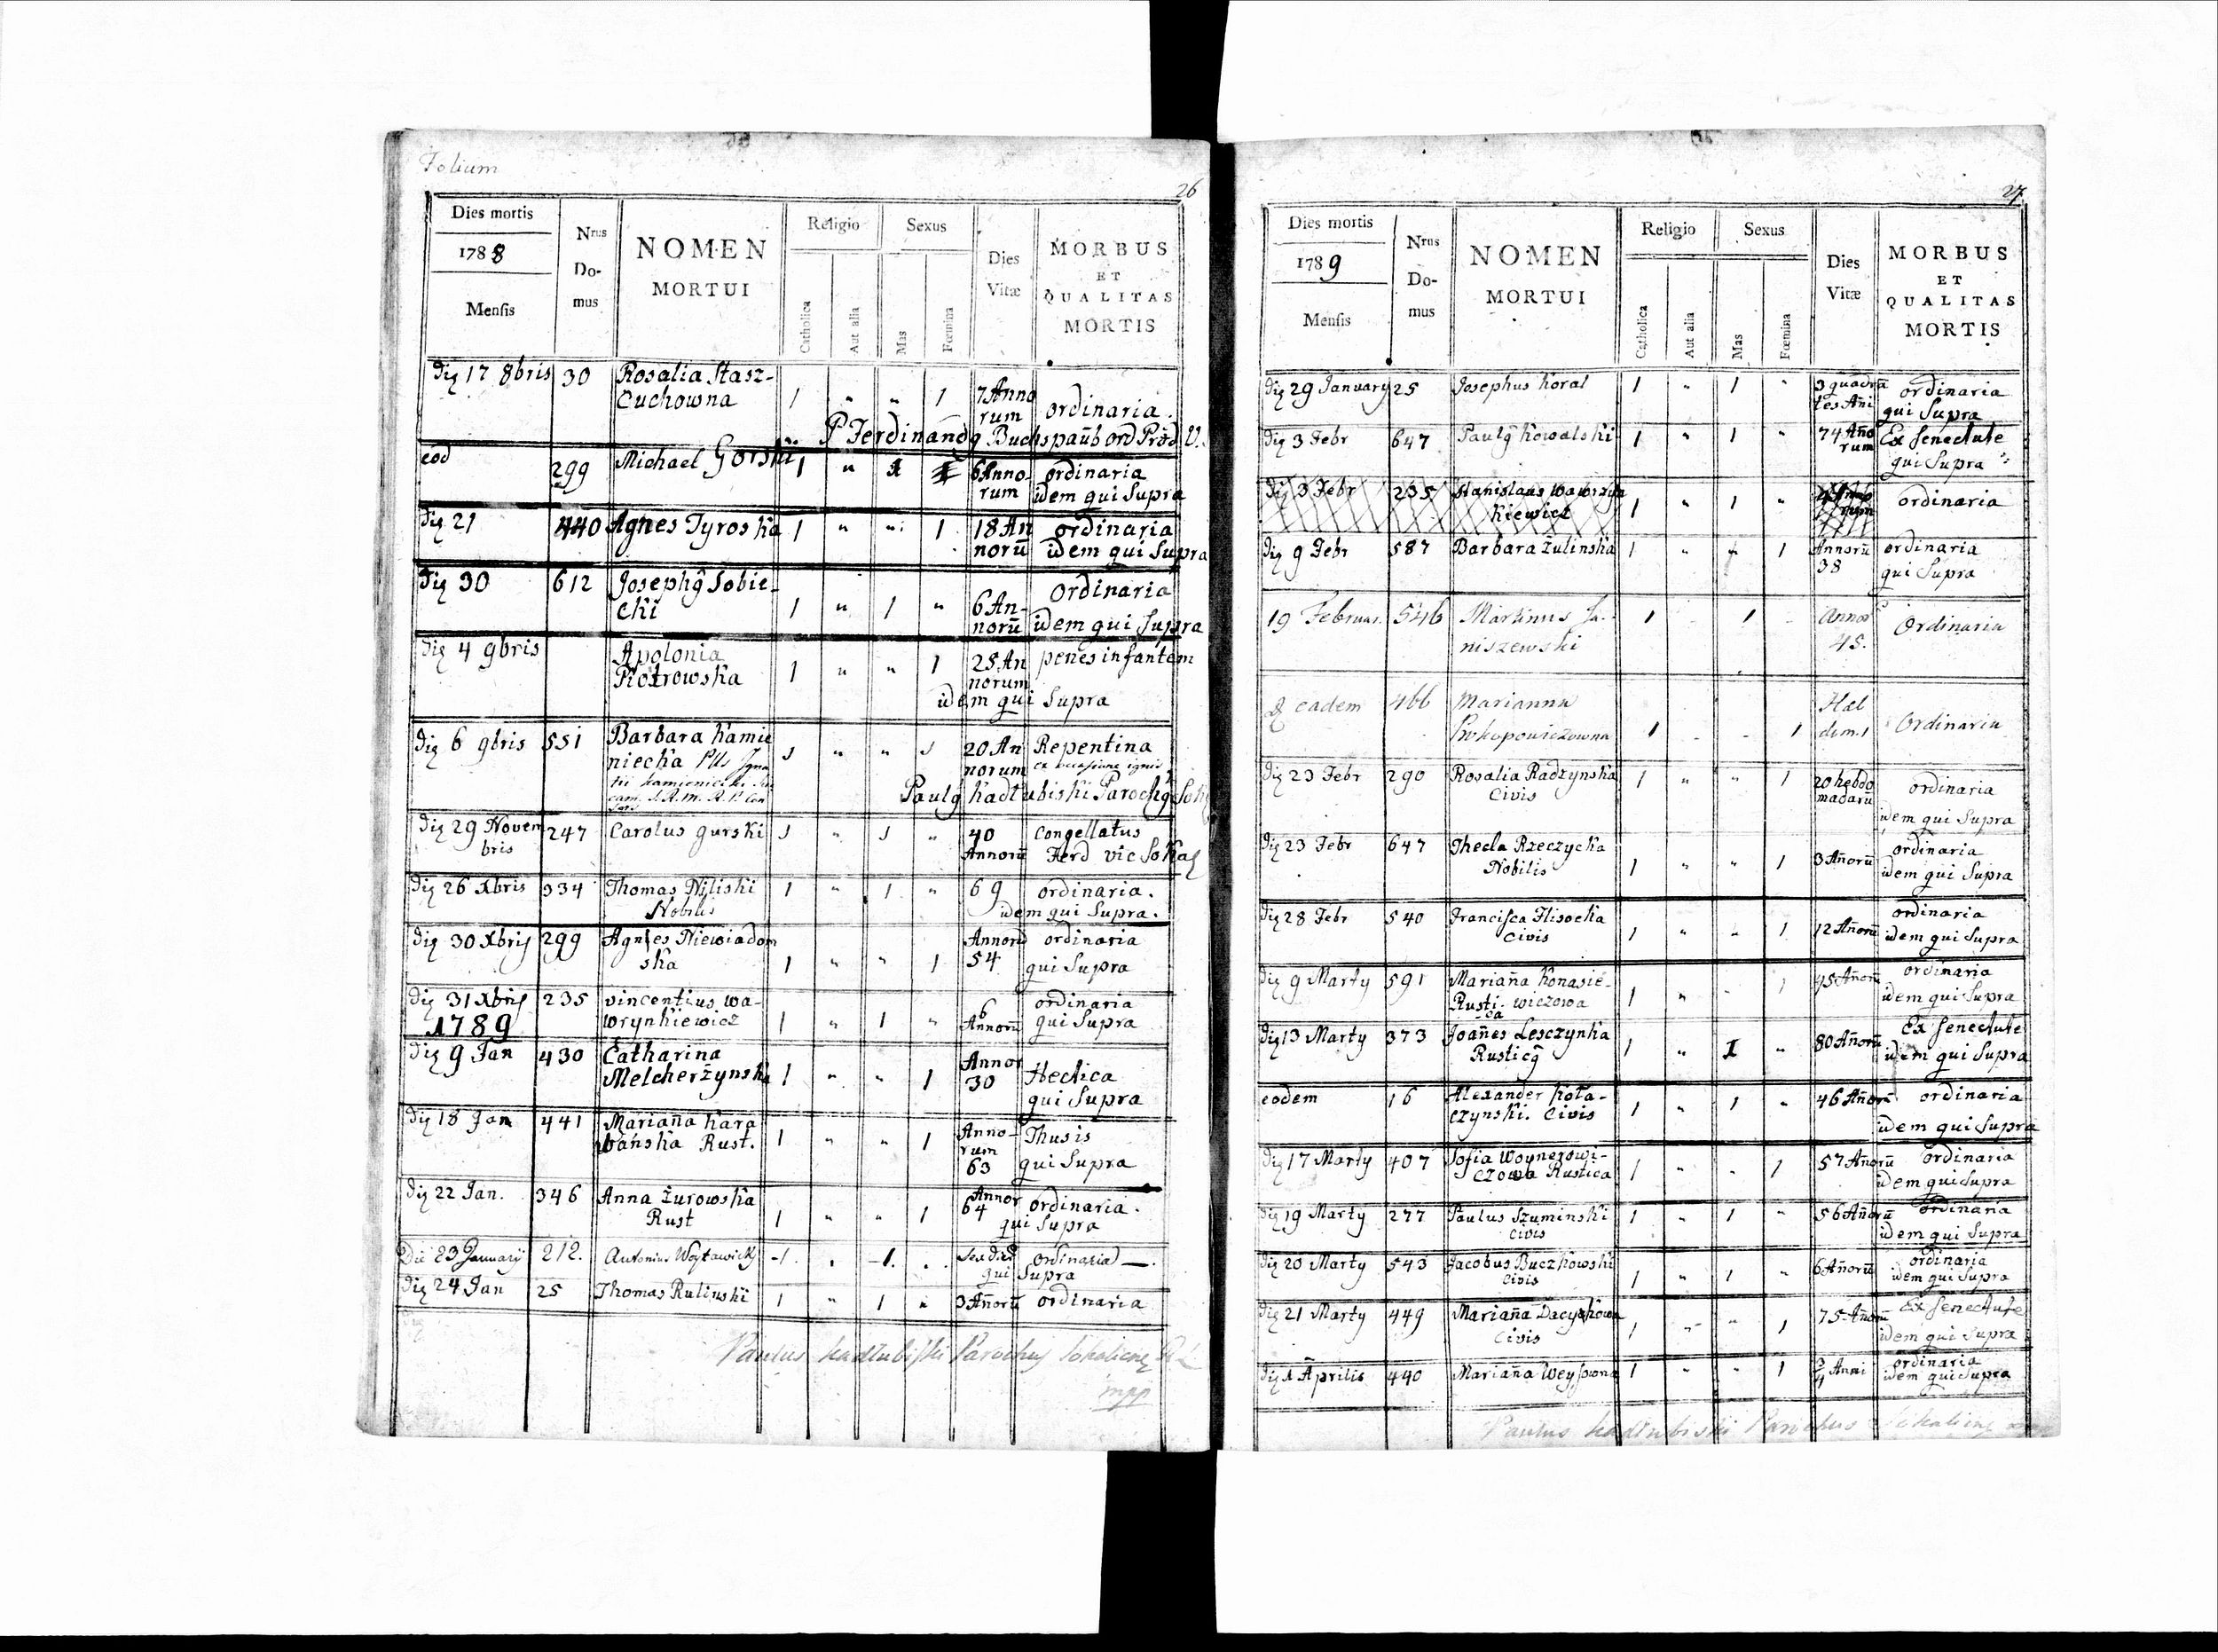 Folium
26
Dies mortis
1788
Mensis
Nrus
Do-
mus
NOMEN
MORTUI
Religio
Catholica
Aut alia
Sexus
Mas
Fœmina
Dies
Vitæ
MORBUS
ET
QUALITAS
MORTIS
Die 17 8bris 30 Rosalia Stasz- 1 " " 1 7 Anno
cuchowna rum ordinaria.
P Ferdinandg Buchspaub ord Præd V.
eod 299 Michael Gorski 1 " 1 6 Anno- ordinaria
rum idem qui Supra
Die 21 440 Agnes Tyroska 1 " " 1 18 An ordinaria
norū idem qui Supra
Die 30 612 Josephg Sobie- 1 " 1 " 6 An- Ordinaria
cki norū idem qui Supra
Die 4 9bris Apolonia 1 " " 1 25 An penes infantem
Piotrowska norum
idem qui Supra
Die 6 9bris 551 Barbara Kamie 1 " " 1 20 An Repentina
niecka norum ex occasione ignis
Kamieniecki
Paulg Kadłubiski Parochg
Die 29 Novem 247 Carolus gurski 1 " 1 " 40 Congellatus
bris Annorū Ferd vic Sokal
Die 26 Xbris 334 Thomas Niliski 1 " 1 " 69 ordinaria.
Nobilis idem qui Supra.
Die 30 Xbris 299 Agnes Niewiadom 1 " " 1 Annorū ordinaria
ska 54 qui Supra
Die 31 Xbris 235 vincentius wa- 1 " 1 " 6 ordinaria
1789 wrynkiewicz Annorū qui Supra
Die 9 Jan 430 Catharina 1 " " 1 Annor
Melcherzynska 30 Hectica
qui Supra
Die 18 Jan 441 Mariaña Kara 1 " " 1 Anno- Thusis
bańska Rust. rum
63 qui Supra
Die 22 Jan. 346 Anna Żurowska 1 " " 1 Annor
Rust 64 ordinaria.
qui Supra
Die 23 Januarij 212. Antonius Woytawicki 1. . 1. . ordinaria
qui Supra
Die 24 Jan 25 Thomas Rulinski 1 " 1 " 3 Añorū ordinaria
Paulus Kadłubiski Parochus
mpp
27
Dies mortis
1789
Mensis
Nrus
Do-
mus
NOMEN
MORTUI
Religio
Catholica
Aut alia
Sexus
Mas
Fœmina
Dies
Vitæ
MORBUS
ET
QUALITAS
MORTIS
Die 29 January 25 Josephus Koral 1 " 1 " 3 quadrā ordinaria
tes Añi qui Supra
Die 3 Febr 647 Paulg Kowalski 1 " 1 " 74 Año Ex Senectute
rum qui Supra
Die 3 Febr 235 Stanislaus Wawrzyn 1 " 1 " ordinaria
kiewicz
Die 9 Febr 587 Barbara Żulinska 1 " " 1 Annorū ordinaria
38 qui Supra
19 Februar. 546 Martinus Ja- 1 1 Annor Ordinaria
niszewski 45.
eadem 466 Marianna Heb
Prokopowiczowna 1 1 dom. 1 Ordinaria
Die 23 Febr 290 Rosalia Radzynska 1 " " 1 20 hebdo ordinaria
Civis madarū
idem qui Supra
Die 23 Febr 647 Thecla Rzeczycka 1 " " 1 3 Añorū ordinaria
Nobilis idem qui Supra
Die 28 Febr 540 Francisca Flisocka 1 " " 1 12 Añorū ordinaria
Civis idem qui Supra
Die 9 Marty 591 Mariaña Konasie- 1 " " 1 Añorū ordinaria
Rusti- wiczowa idem qui Supra
ca
Die 13 Marty 373 Joañes Lesczynka 1 " 1 " 80 Añorū Ex Senectute
Rusticg idem qui Supra
eodem 16 Alexander Koła- 1 " 1 " 46 Añorū ordinaria
czynski. Civis idem qui Supra
Die 17 Marty 407 Sofia Woynerowi- 1 " " 1 57 Añorū ordinaria
czowa Rustica idem qui Supra
Die 19 Marty 277 Paulus Szuminski 1 " 1 " 56 Añorū ordinaria
Civis idem qui Supra
Die 20 Marty 543 Jacobus Buczkowski 1 " 1 " 6 Añorū ordinaria
Civis idem qui Supra
Die 21 Marty 449 Mariaña Dacyskowa 1 " " 1 75 Añorū Ex Senectute
Civis idem qui Supra
Die 1 Aprilis 440 Mariaña Weyssowna 1 " " 1 3/4 Anni ordinaria
idem qui Supra
Paulus Kadłubiski Parochus